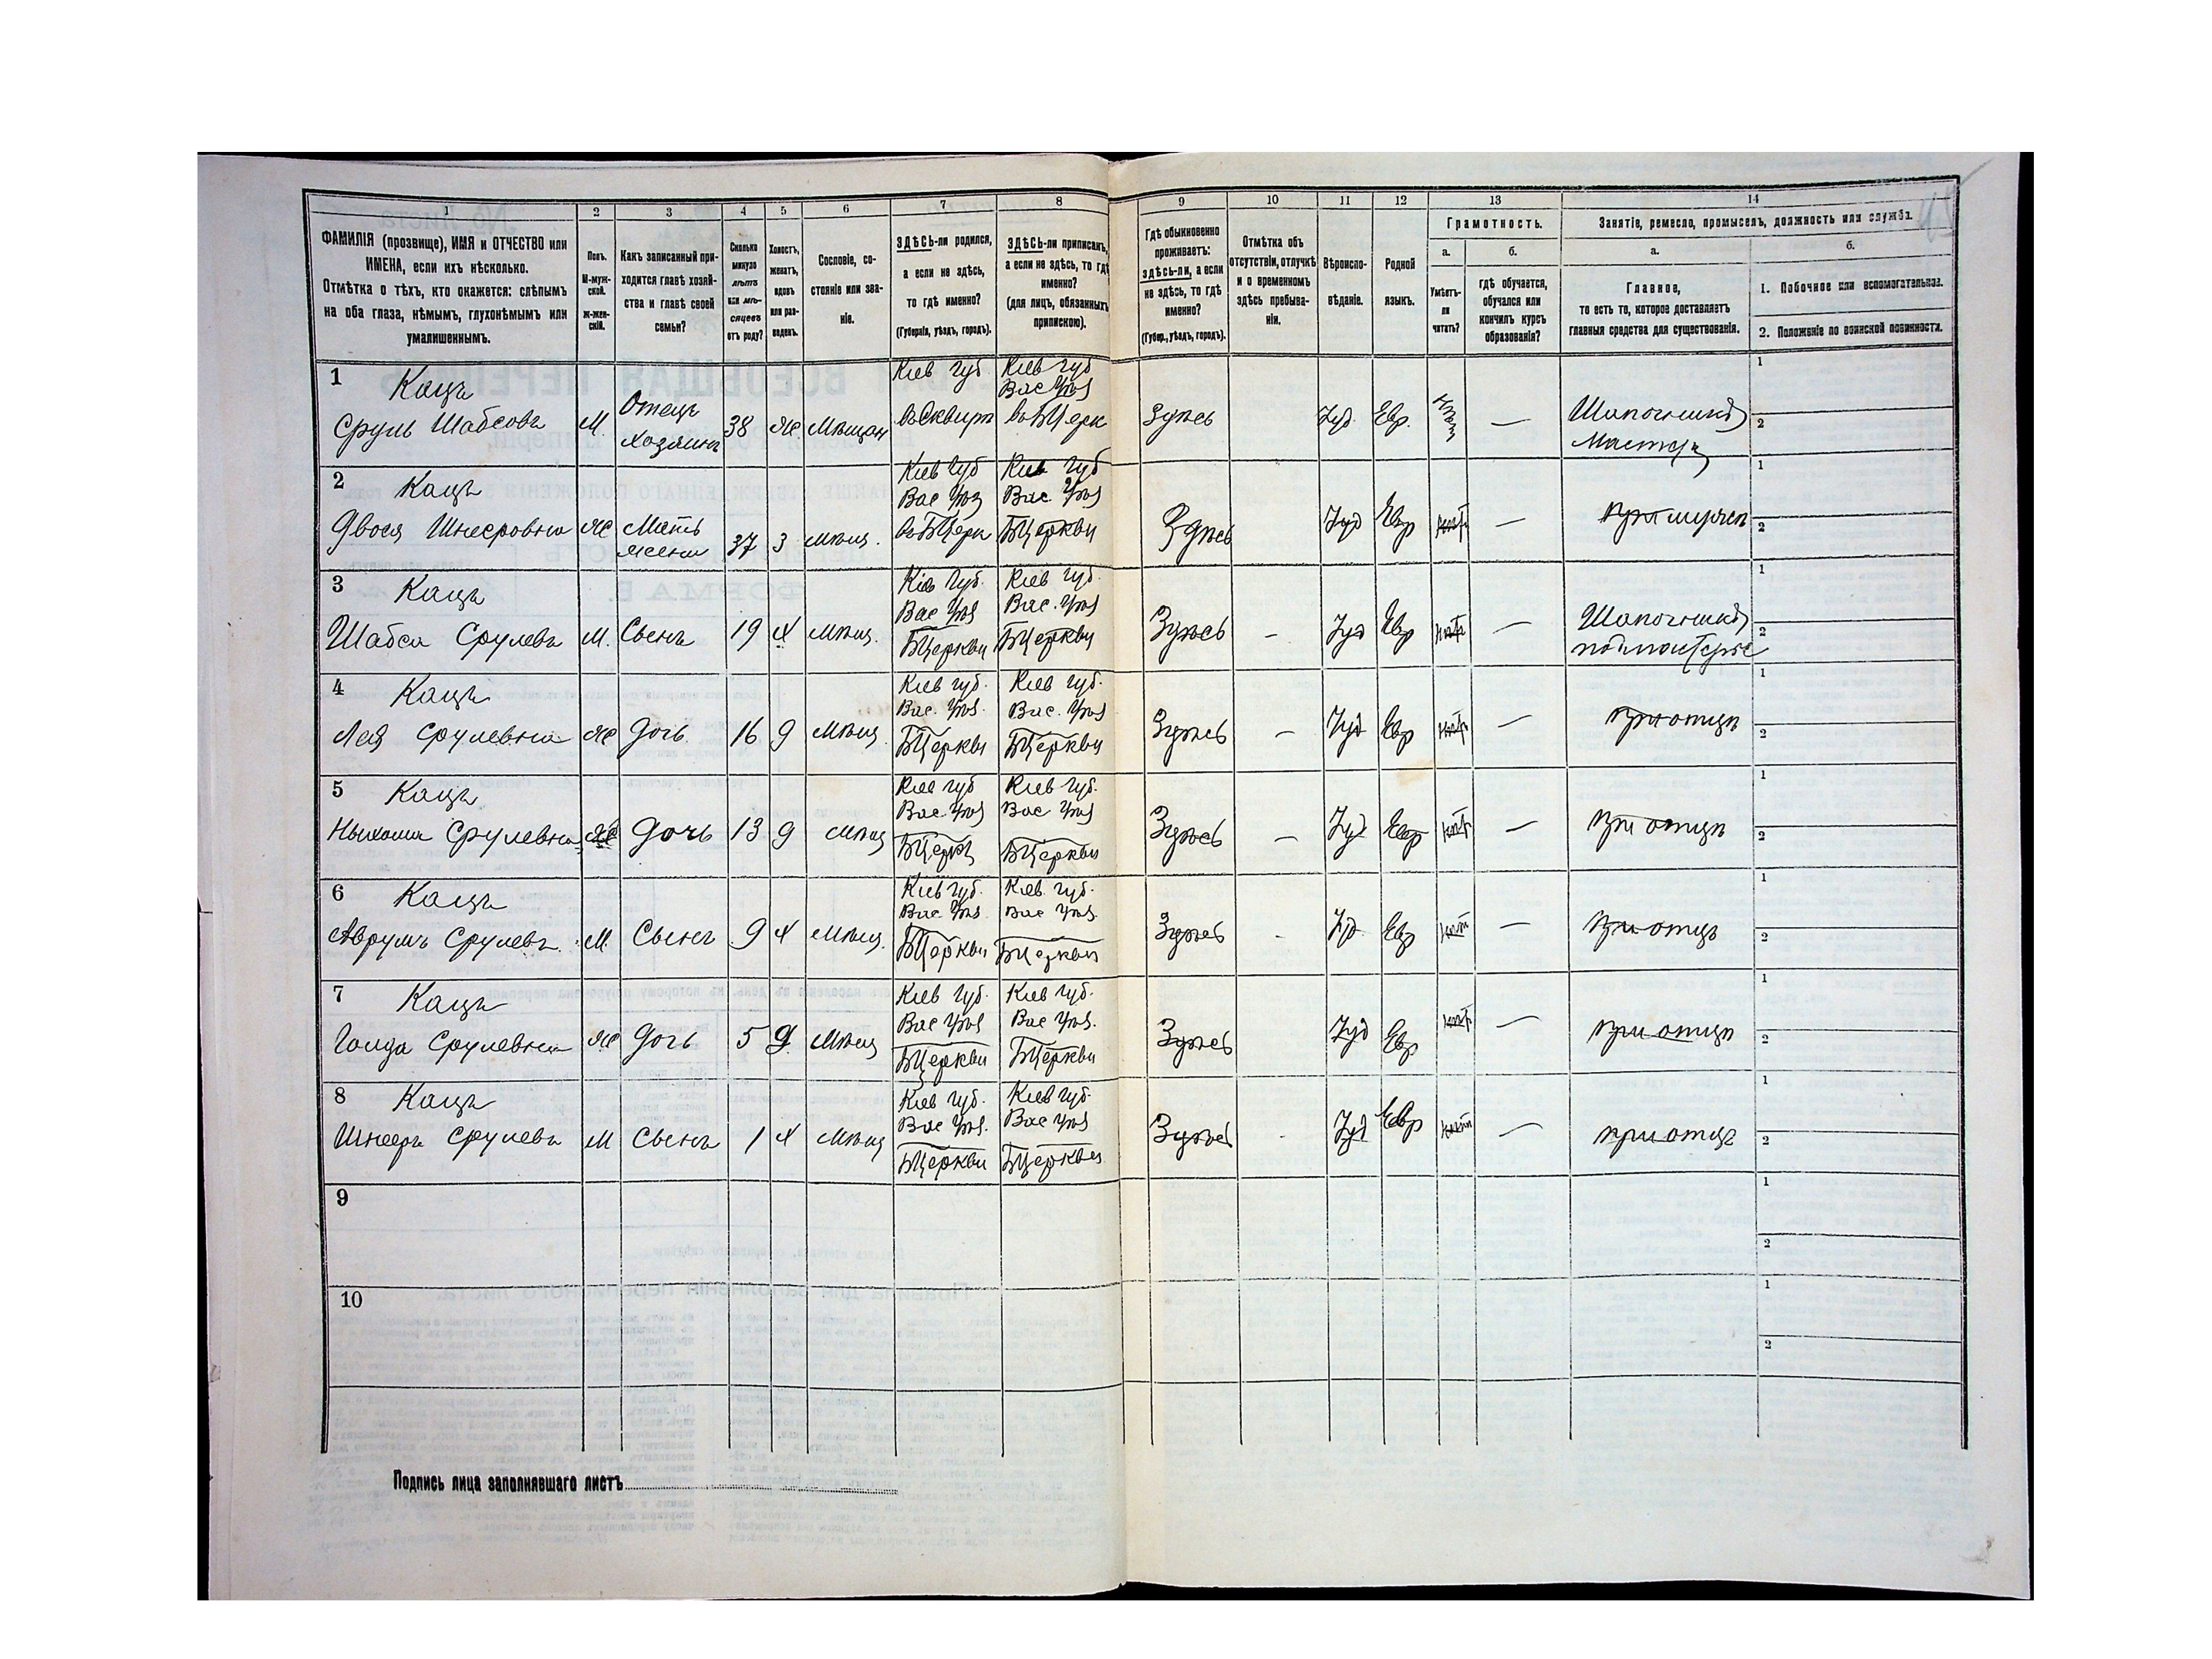 1 2 3 4 5 6 7 8 9 10 11 12 13 14
ФАМИЛІЯ (прозвище), ИМЯ и ОТЧЕСТВО или
ИМЕНА, если ихъ нѣсколько.
Отмѣтка о тѣхъ, кто окажется: слѣпымъ
на оба глаза, нѣмымъ, глухонѣмымъ или
умалишеннымъ.
Полъ.
М-муж-
ской.
Ж-жен-
скій.
Какъ записанный при-
ходится главѣ хозяй-
ства и главѣ своей
семьи?
Сколько
минуло
лѣтъ
или мѣ-
сяцевъ
отъ роду?
Холостъ,
женатъ,
вдовъ
или раз-
веденъ.
Сословіе, со-
стояніе или зва-
ніе.
ЗДѢСЬ-ли родился,
а если не здѣсь,
то гдѣ именно?
(Губернія, уѣздъ, городъ).
ЗДѢСЬ-ли приписанъ,
а если не здѣсь, то гдѣ
именно?
(для лицъ, обязанныхъ
припиской).
Гдѣ обыкновенно
проживаетъ:
здѣсь-ли, а если
не здѣсь, то гдѣ
именно?
(Губер., уѣздъ, городъ).
Отмѣтка объ
отсутствіи, отлучкѣ
и о временномъ
здѣсь пребыва-
ніи.
Вѣроиспо-
вѣданіе.
Родной
языкъ.
Грамотность.
а.
Умѣетъ-
ли
читать?
б.
гдѣ обучается,
обучался или
кончилъ курсъ
образованія?
Занятіе, ремесло, промыселъ, должность или служба.
а.
Главное,
то есть то, которое доставляетъ
главныя средства для существованія.
б.
1. Побочное или вспомогательное.
2. Положеніе по воинской повинности.
1 Кацъ
Сруль Шабсовъ М. Отецъ Хозяинъ 38 Ж. Мѣщан
Кіев губ
въ Сквирѣ
Кіев губ
Вас Уѣз
въ БЦерк
Здѣсь Іуд. Евр. нѣтъ — Шапочникъ
Мастеръ
1
2
2 Кацъ
Двося Шнееровна Ж Мать жена 37 З мѣщ.
Кіев губ
Вас Уѣз
въ БЦерк
Кіев губ
Вас Уѣз
БЦеркви
Здѣсь Іуд Евр нѣтъ — при мужѣ
1
2
3 Кацъ
Шабса Срулевъ М. Сынъ 19 Х мѣщ.
Кіев губ.
Вас Уѣз
БЦеркви
Кіев губ.
Вас. Уѣз
БЦеркви
Здѣсь — Іуд Евр нѣтъ — Шапочникъ
подмастерье
1
2
4 Кацъ
Лея Срулевна Ж Дочь 16 Д Мѣщ
Кіев губ.
Вас. Уѣз.
БЦеркви
Кіев губ.
Вас. Уѣз
БЦеркви
Здѣсь — Іуд Евр нѣтъ — при отцѣ
1
2
5 Кацъ
Срулевна Ж Дочь 13 Д мѣщ
Кіев губ
Вас Уѣз
БЦеркв
Кіев губ.
Вас Уѣз
БЦеркви
Здѣсь — Іуд Евр нѣтъ — при отцѣ
1
2
6 Кацъ
Аврумъ Срулевъ М. Сынъ 9 Х Мѣщ.
Кіев губ.
Вас Уѣз
БЦеркви
Кіев. губ.
Вас Уѣз.
БЦеркви
Здѣсь - Іуд Евр нѣтъ — при отцѣ
1
2
7 Кацъ
Голда Срулевна Ж Дочь 5 Д. Мѣщ
Кіев губ.
Вас Уѣз
БЦеркви
Кіев губ.
Вас Уѣз.
БЦеркви
Здѣсь Іуд Евр нѣтъ — при отцѣ
1
2
8 Кацъ
Шнееръ Срулевъ М Сынъ 1 Х Мѣщ
Кіев губ.
Вас Уѣз.
БЦеркви
Кіев губ.
Вас Уѣз
БЦеркви
Здѣсь - Іуд Евр нѣтъ — при отцѣ
1
2
9
1
2
10
1
2
Подпись лица заполнявшаго листъ